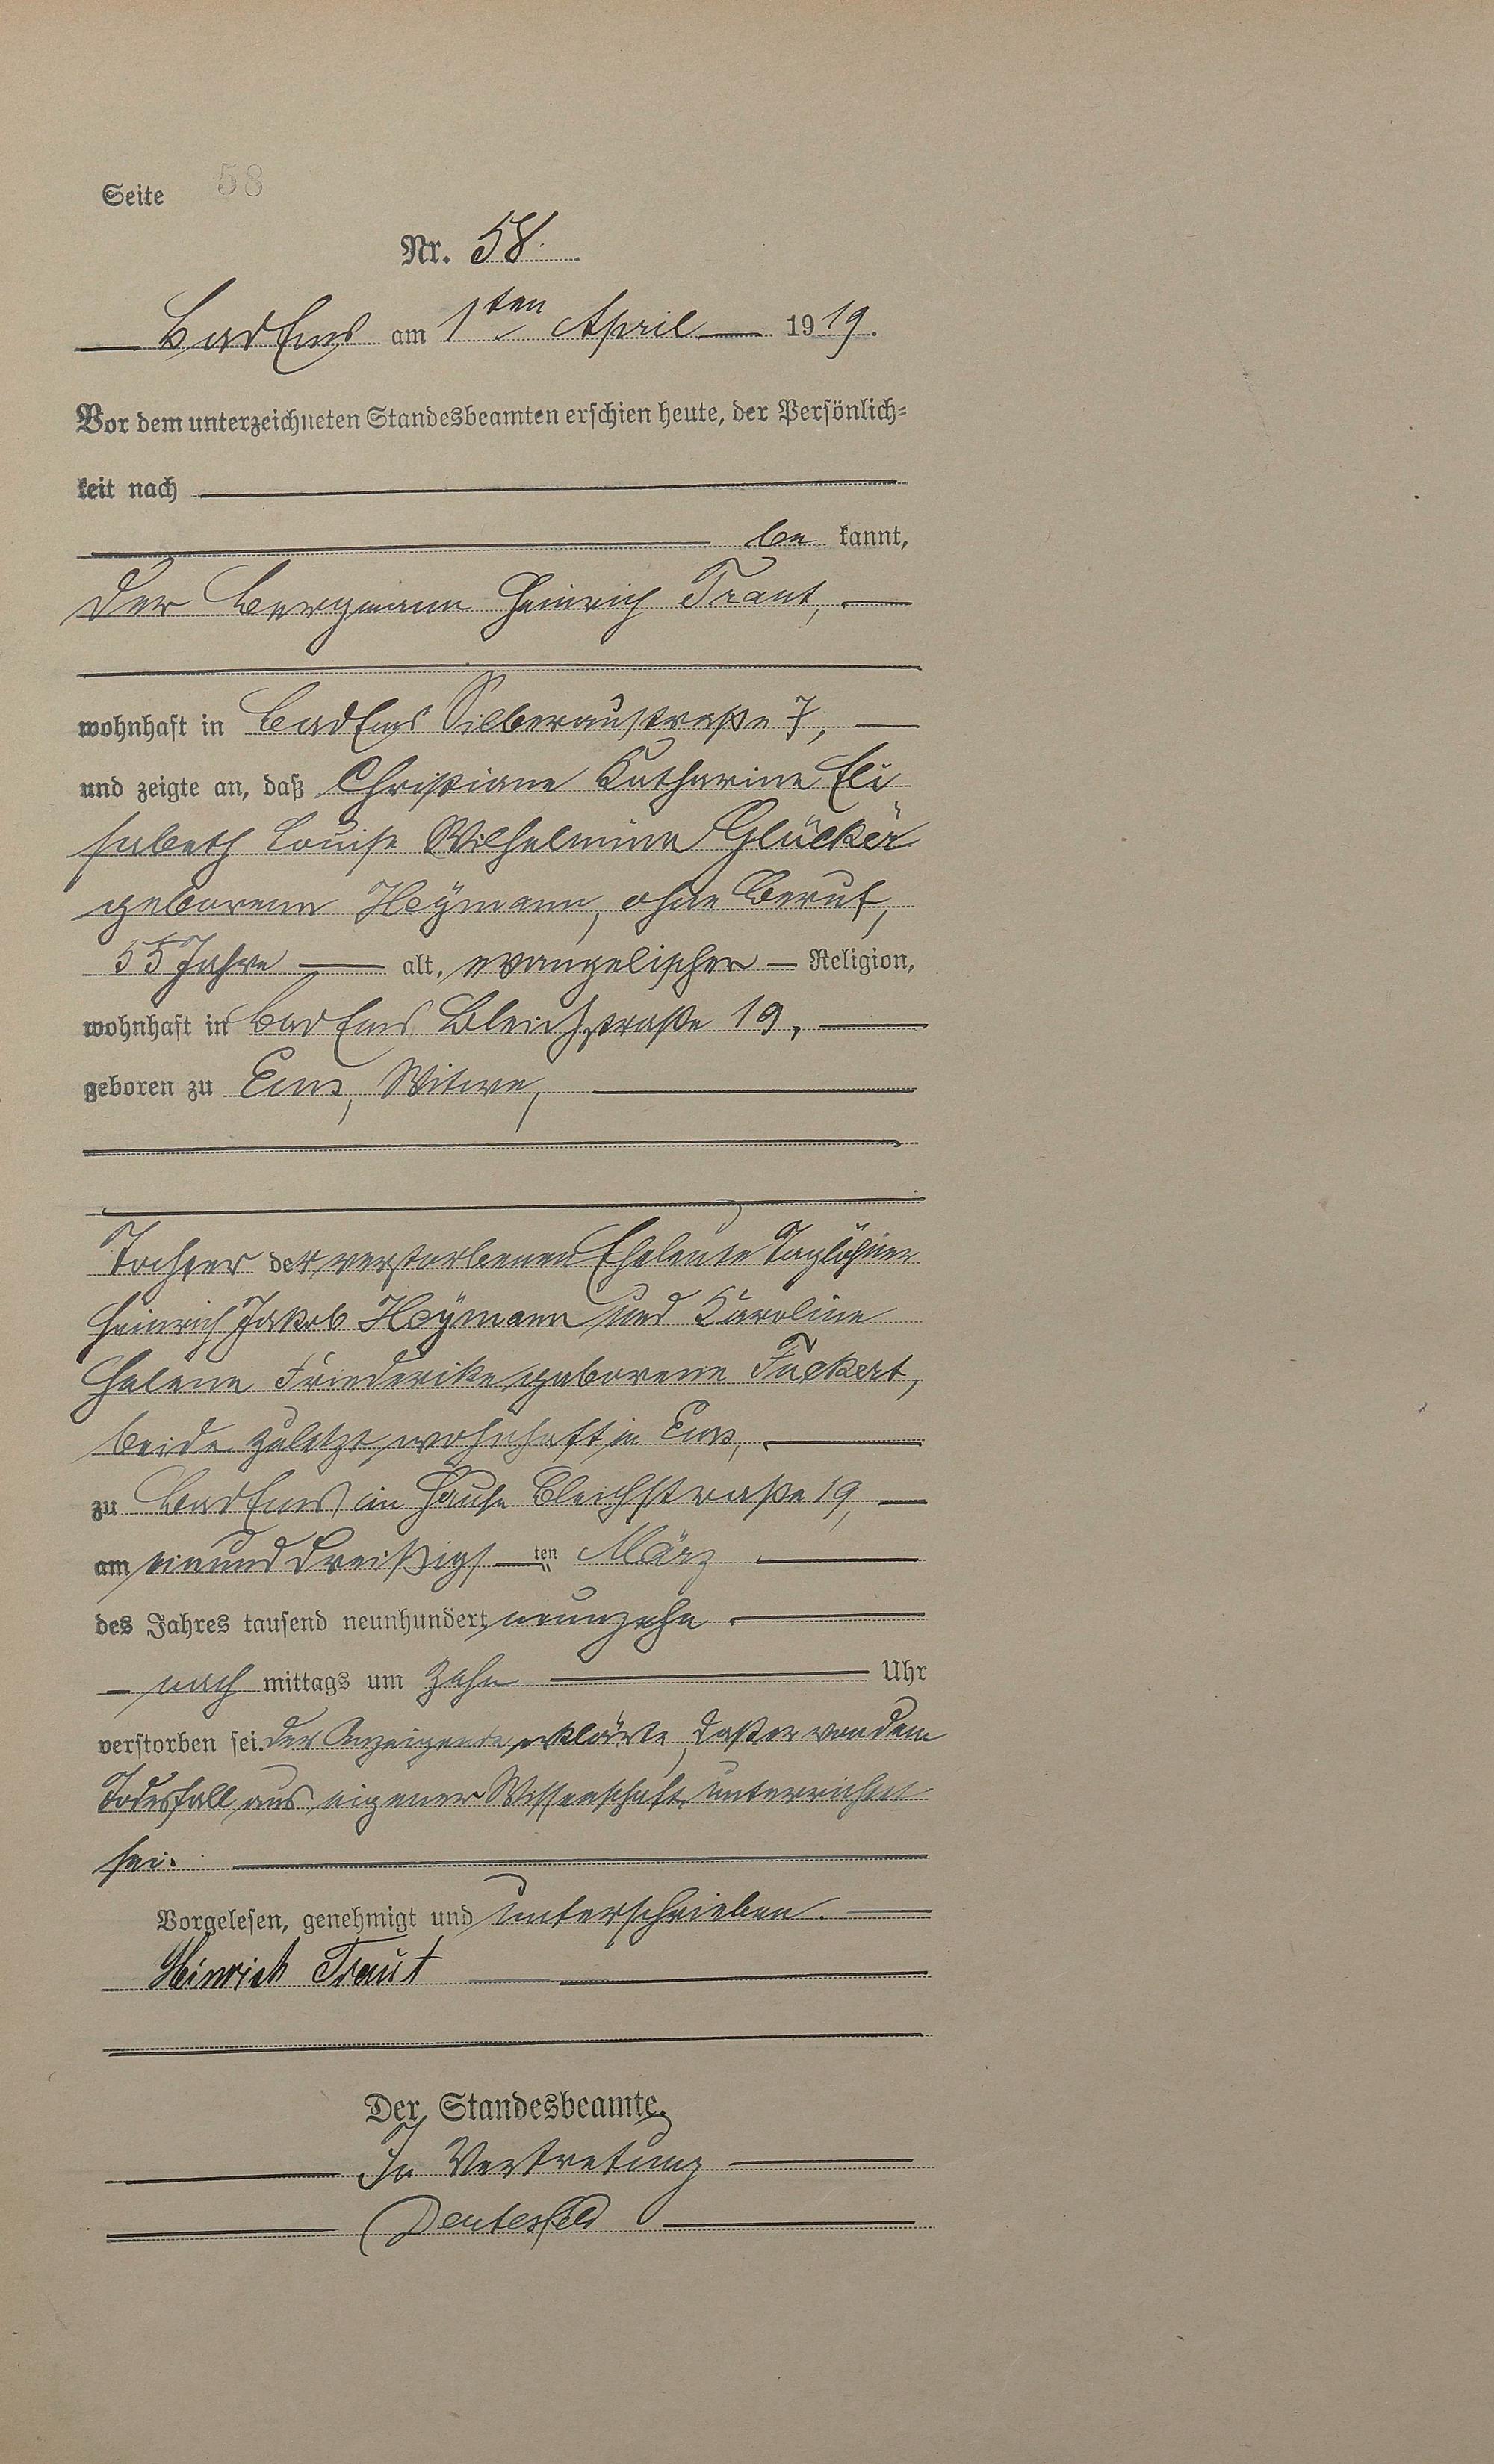 Seite 58
Nr. 58.
Bad Ems am 1ten April 1919.
Vor dem unterzeichneten Standesbeamten erschien heute, der Persönlich-
keit nach
be kannt,
der Bergmann Heinrich Traut,
wohnhaft in Bad Ems Silberaustraße 7,
und zeigte an, daß Christiane Katharine Eli
sabeth Louise Wilhelmine Glücker
geborene Heymann, ohne Beruf,
55 Jahre alt, evangelischer Religion,
wohnhaft in Bad Ems Bleichstraße 19,
geboren zu Ems, Witwe,
Tochter der verstorbenen Eheleute Taglöhner
Heinrich Jakob Heymann und Karoline
Helene Friederike geborene Fuckert,
beide zuletzt wohnhaft in Ems,
zu Bad Ems im Hause Bleichstraße 19,
am einunddreißigsten März
des Jahres tausend neunhundert neunzehn
nach mittags um zehn Uhr
verstorben sei. Der Anzeigende erklärte, daß er von dem
Todesfall aus eigener Wissenschaft unterrichtet
sei.
Vorgelesen, genehmigt und unterschrieben.
Heinrich Traut
Der Standesbeamte.
In Vertretung